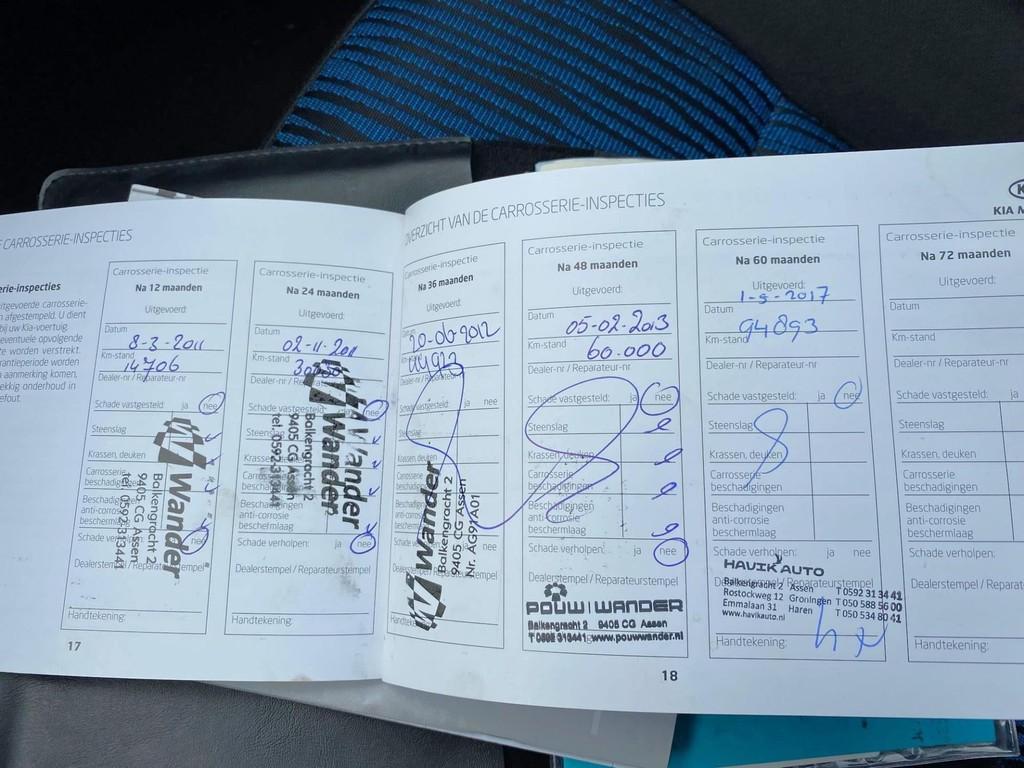 CARROSSERIE-INSPECTIES
OVERZICHT VAN DE CARROSSERIE-INSPECTIES
KIA M
erie-inspecties
itgevoerde carrosserie-
n afgestempeld. U dient
bij uw Kia-voertuig.
eventuele opvolgende
te worden verstrekt.
rantieperiode worden
aanmerking komen,
ekkig onderhoud in
efout.
Carrosserie-inspectie
Na 12 maanden
Uitgevoerd:
Datum
8-3-2011
Km-stand
14706
Dealer-nr / Reparateur-nr
Schade vastgesteld: ja nee
Steenslag
Krassen, deuken
Carrosserie
beschadigingen
Beschadigingen
anti-corrosie
beschermlaag
Schade verholpen: ja nee
Dealerstempel / Reparateurstempel
Wander
Balkengracht 2
9405 CG Assen
tel. 0592-313441
Handtekening:
17
Carrosserie-inspectie
Na 24 maanden
Uitgevoerd:
Datum
02-11-2011
Km-stand
Dealer-nr / Reparateur-nr
Schade vastgesteld: ja nee
Steenslag
Krassen, deuken
Carrosserie
beschadigingen
Beschadigingen
anti-corrosie
beschermlaag
Schade verholpen: ja nee
Dealerstempel / Reparateurstempel
Wander
Wander
Balkengracht 2
9405 CG Assen
tel. 0592-313441
Handtekening:
Carrosserie-inspectie
Na 36 maanden
Uitgevoerd:
Datum
20-06-2012
Km-stand
Dealer-nr / Reparateur-nr
Schade vastgesteld: ja nee
Steenslag
Krassen, deuken
Carrosserie
beschadigingen
Beschadigingen
anti-corrosie
beschermlaag
Schade verholpen: ja nee
Dealerstempel / Reparateurstempel
Wander
Balkengracht 2
9405 CG Assen
Nr. AG91A01
Handtekening:
Carrosserie-inspectie
Na 48 maanden
Uitgevoerd:
Datum
05-02-2013
Km-stand
60.000
Dealer-nr / Reparateur-nr
Schade vastgesteld: ja nee
Steenslag
Krassen, deuken
Carrosserie
beschadigingen
Beschadigingen
anti-corrosie
beschermlaag
Schade verholpen: ja nee
Dealerstempel / Reparateurstempel
POUW WANDER
Balkengracht 2 9405 CG Assen
T 0592 313441 www.pouwwander.nl
18
Carrosserie-inspectie
Na 60 maanden
Uitgevoerd:
1-9-2017
Datum
94893
Km-stand
Dealer-nr / Reparateur-nr
Schade vastgesteld: ja nee
Steenslag
Krassen, deuken
Carrosserie
beschadigingen
Beschadigingen
anti-corrosie
beschermlaag
Schade verholpen: ja nee
HAVIK AUTO
Dealerstempel / Reparateurstempel
Balkengracht 2 Assen T 0592 31 34 41
Rostockweg 12 Groningen T 050 588 56 00
Emmalaan 31 Haren T 050 534 80 41
www.havikauto.nl
Handtekening:
Carrosserie-inspectie
Na 72 maanden
Uitgevoerd:
Datum
Km-stand
Dealer-nr / Reparateur-nr
Schade vastgesteld:
Steenslag
Krassen, deuken
Carrosserie
beschadigingen
Beschadigingen
anti-corrosie
beschermlaag
Schade verholpen:
Dealerstempel / Reparat
Handtekening: